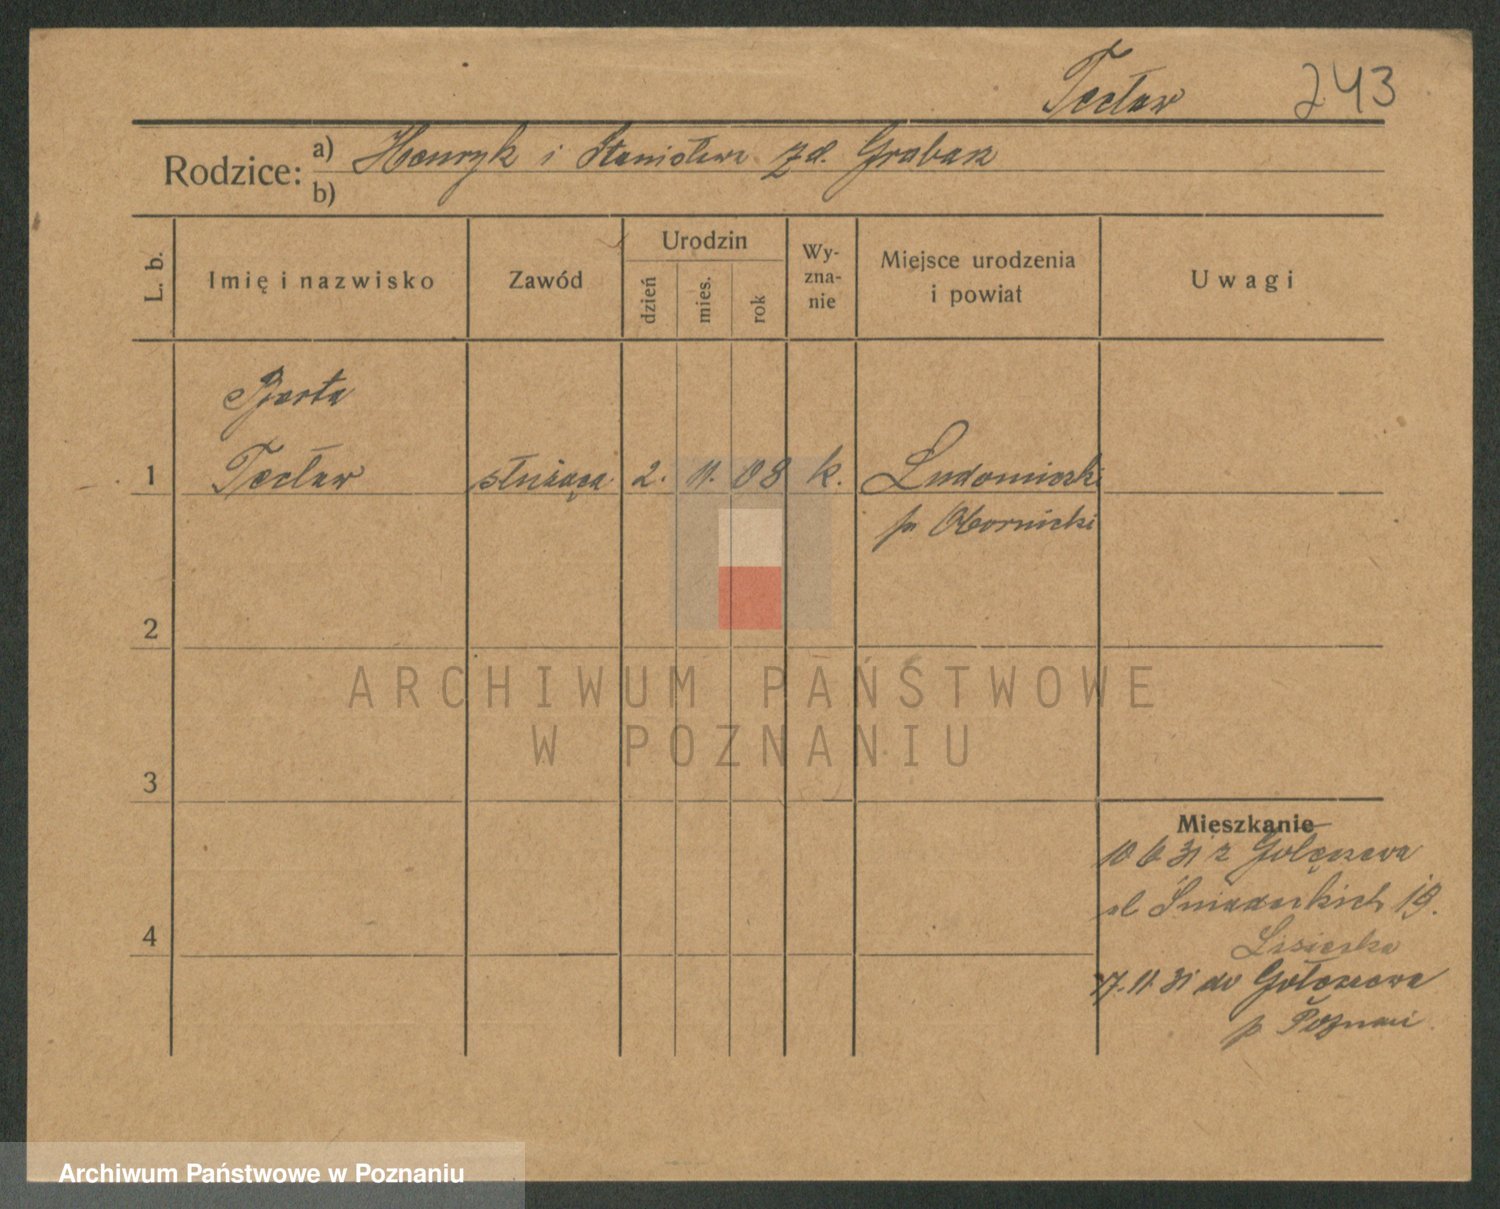 Tecław 243
Rodzice: a) Henryk i Stanisława z d. Graban
b)
L. b. Imię i nazwisko Zawód Urodzin dzień mies. rok Wy-zna-nie Miejsce urodzenia i powiat Uwagi
Berta
1 Tecław służąca 2. 11. 08 k. Ludomicki
p. Obornicki
2
ARCHIWUM PAŃSTWOWE
W POZNANIU
3
Mieszkanie
10 6 31 z Golęczewa
ul Śniadeckich 19.
4
17.11.31 do Golęczewa
p Poznań
Archiwum Państwowe w Poznaniu